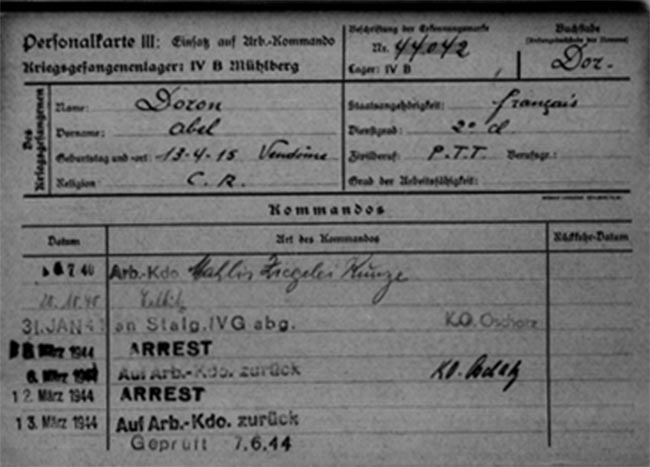 Personalkarte III: Einsatz auf Arb.-Kommando
Kriegsgefangenenlager: IV B Mühlberg
Beschriftung der Erkennungsmarke
Nr. 44042
Lager: IV B
Buchstabe
Dor.
Des Kriegsgefangenen
Name: Doron
Vorname: abel
Geburtstag und -ort: 13-4-15 Vendôme
Religion C.R.
Staatsangehörigkeit: français
Dienstgrad: 2° cl
Zivilberuf: P.T.T. Berufsgr.:
Grad der Arbeitsfähigkeit:
Kommandos
Datum Art des Kommandos Rückkehr-Datum
7 40 Arb.-Kdo Mahlis Ziegelei Kunze
31. JAN 41 an Stalg. IVG abg. K.O. Oschatz
März 1944 ARREST
6. März Auf Arb.-Kdo. zurück KO. Oschatz
12. März 1944 ARREST
13. März 1944 Auf Arb.-Kdo. zurück
Geprüft 7.6.44